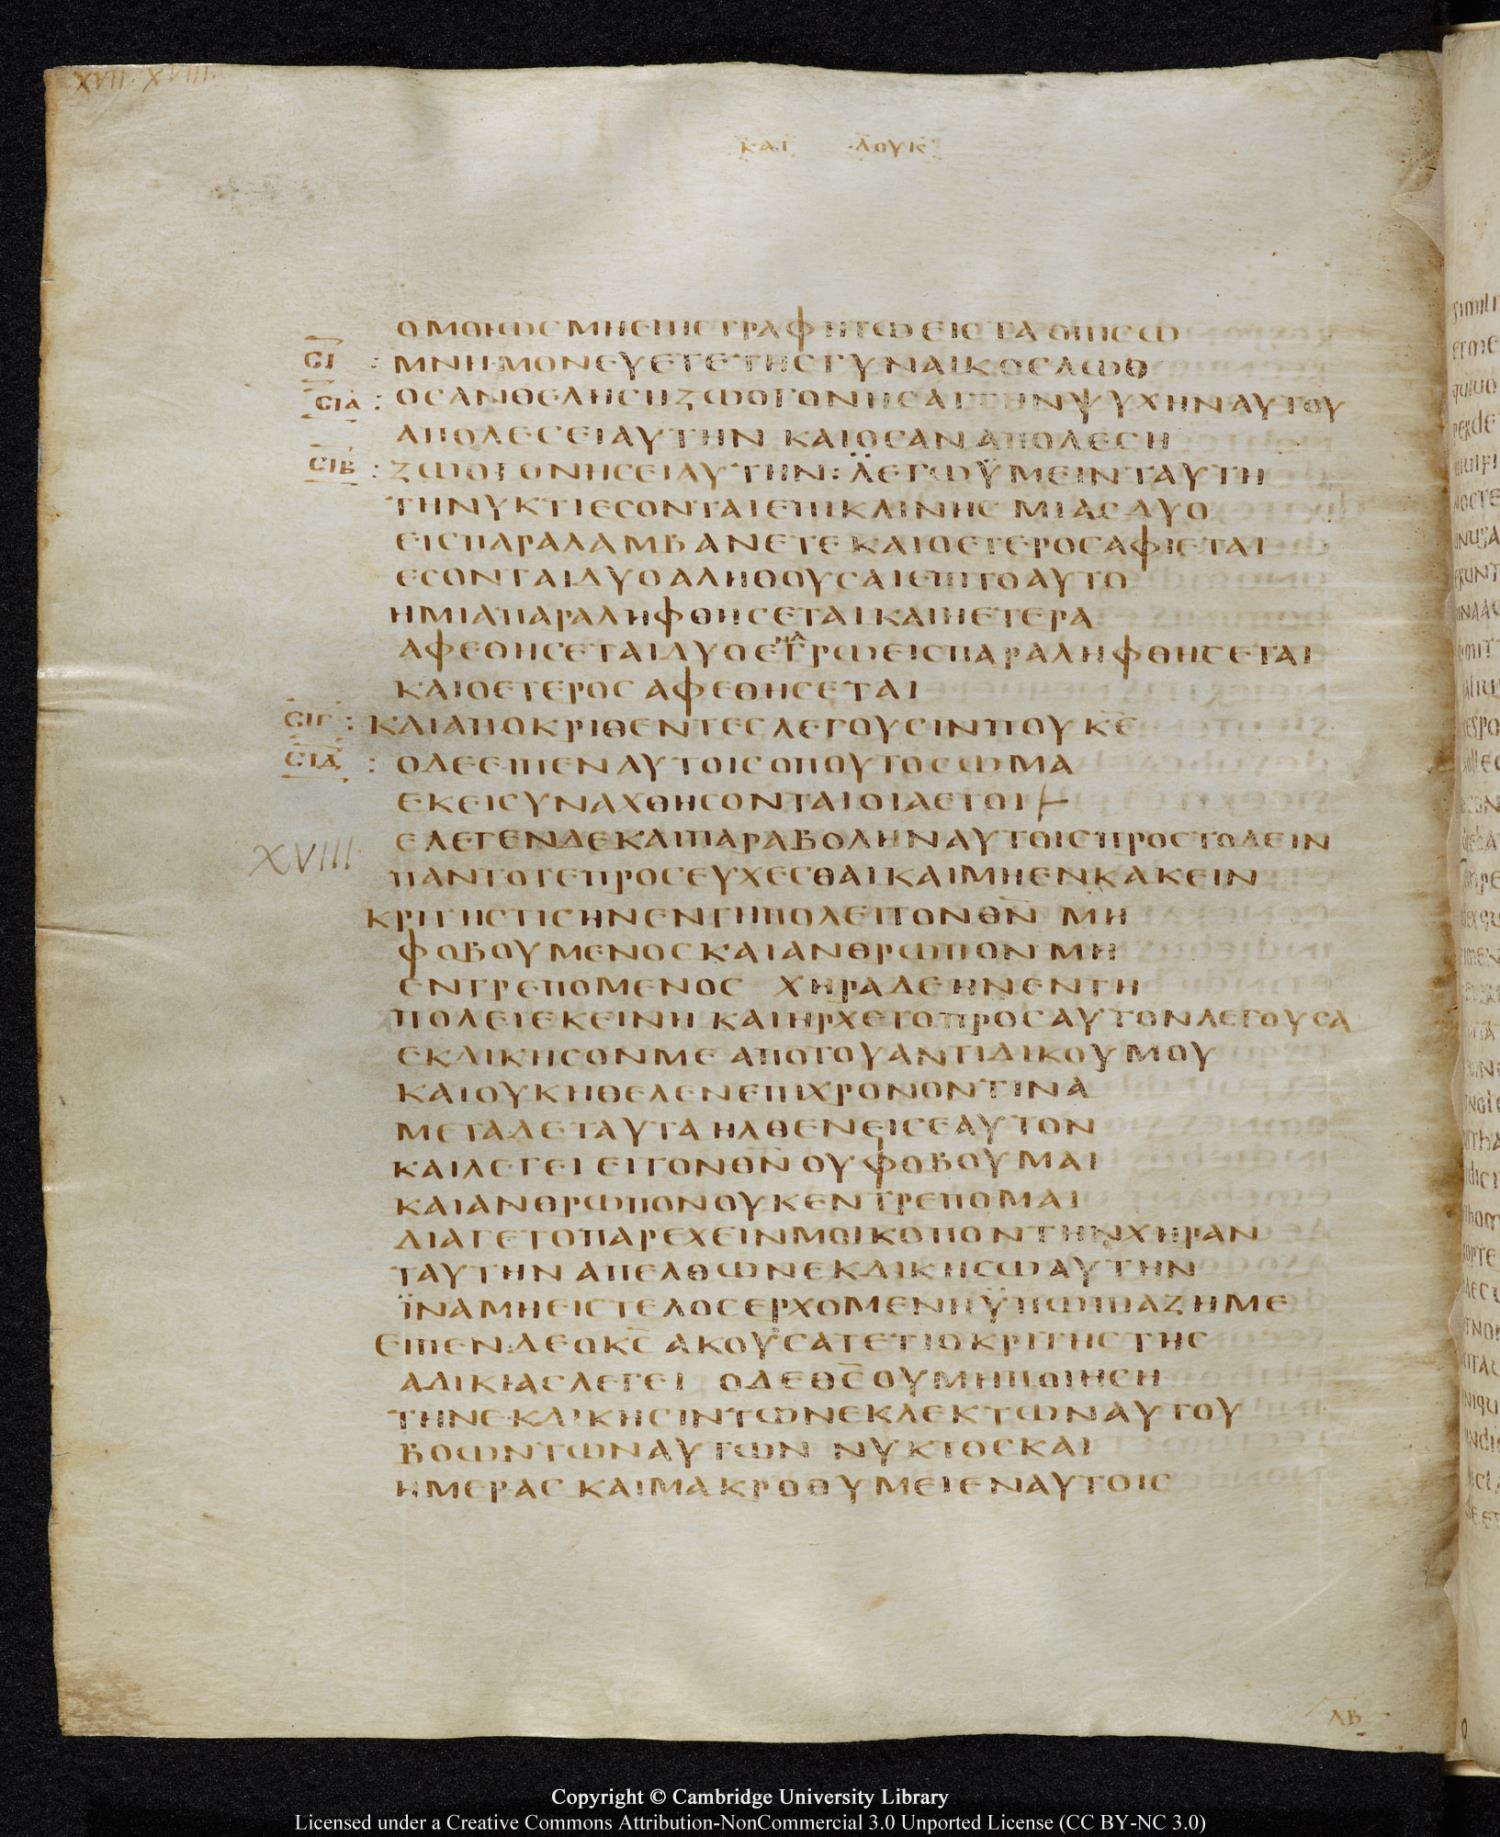 XVIII · XVIIII ·
ΚΑΤ ·ΛΟΥΚ·
ΟΜΟΙΩϹΜΗΕΠΙϹΤΡΑΦΗΤΩΕΙϹΤΑΟΠΙϹΩ
ϹΙ : ΜΝΗΜΟΝΕΥΕΤΕΤΗϹΓΥΝΑΙΚΟϹΛΩΘ
ϹΙΑ : ΟϹΑΝΘΕΛΗϹΗΖΩΟΓΟΝΗϹΑΙΤΗΝΨΥΧΗΝΑΥΤΟΥ
ΑΠΟΛΕϹΕΙΑΥΤΗΝ ΚΑΙΟϹΑΝ ΑΠΟΛΕϹΗ
ϹΙΒ : ΖΩΟΓΟΝΗϹΕΙΑΥΤΗΝ: ΛΕΓΩΫΜΕΙΝΤΑΥΤΗ
ΤΗΝΥΚΤΙΕϹΟΝΤΑΙΕΠΙΚΛΙΝΗϹ ΜΙΑϹΔΥΟ
ΕΙϹΠΑΡΑΛΑΜΒΑΝΕΤΕ ΚΑΙΟΕΤΕΡΟϹΑΦΙΕΤΑΙ
ΕϹΟΝΤΑΙΔΥΟΑΛΗΘΟΥϹΑΙΕΠΙΤΟΑΥΤΟ
ΗΜΙΑΠΑΡΑΛΗΦΘΗϹΕΤΑΙΚΑΙΗΕΤΕΡΑ
ΑΦΕΘΗϹΕΤΑΙΔΥΟΕΓΡΩΕΙϹΠΑΡΑΛΗΦΘΗϹΕΤΑΙ
ΚΑΙΟΕΤΕΡΟϹ ΑΦΕΘΗϹΕΤΑΙ
ϹΙΓ : ΚΑΙΑΠΟΚΡΙΘΕΝΤΕϹΛΕΓΟΥϹΙΝΠΟΥΚ̅Ε̅
ϹΙΔ : ΟΔΕΕΙΠΕΝΑΥΤΟΙϹΟΠΟΥΤΟϹΩΜΑ
ΕΚΕΙϹΥΝΑΧΘΗϹΟΝΤΑΙΟΙΑΕΤΟΙ
ΕΛΕΓΕΝΔΕΚΑΙΠΑΡΑΒΟΛΗΝΑΥΤΟΙϹΠΡΟϹΤΟΔΕΙΝ
XVIII · ΠΑΝΤΟΤΕΠΡΟϹΕΥΧΕϹΘΑΙΚΑΙΜΗΕΝΚΑΚΕΙΝ
ΚΡΙΤΗϹΤΙϹΗΝΕΝΤΗΠΟΛΕΙΤΟΝΘ̅Ν̅ ΜΗ
ΦΟΒΟΥΜΕΝΟϹΚΑΙΑΝΘΡΩΠΟΝΜΗ
ΕΝΤΡΕΠΟΜΕΝΟϹ ΧΗΡΑΔΕΗΝΕΝΤΗ
ΠΟΛΕΙΕΚΕΙΝΗ ΚΑΙΗΡΧΕΤΟΠΡΟϹΑΥΤΟΝΛΕΓΟΥϹΑ
ΕΚΔΙΚΗϹΟΝΜΕ ΑΠΟΤΟΥΑΝΤΙΔΙΚΟΥΜΟΥ
ΚΑΙΟΥΚΗΘΕΛΕΝΕΠΙΧΡΟΝΟΝΤΙΝΑ
ΜΕΤΑΔΕΤΑΥΤΑ ΗΛΘΕΝΕΙϹΕΑΥΤΟΝ
ΚΑΙΛΕΓΕΙ ΕΙΤΟΝΘ̅Ν̅ ΟΥΦΟΒΟΥΜΑΙ
ΚΑΙΑΝΘΡΩΠΟΝΟΥΚΕΝΤΡΕΠΟΜΑΙ
ΔΙΑΓΕΤΟΠΑΡΕΧΕΙΝΜΟΙΚΟΠΟΝΤΗΝΧΗΡΑΝ
ΤΑΥΤΗΝ ΑΠΕΛΘΩΝΕΚΔΙΚΗϹΩΑΥΤΗΝ
ΪΝΑΜΗΕΙϹΤΕΛΟϹΕΡΧΟΜΕΝΗΫΠΩΠΙΑΖΗΜΕ
ΕΙΠΕΝΔΕΟΚ̅Ϲ̅ ΑΚΟΥϹΑΤΕΤΙΟΚΡΙΤΗϹΤΗϹ
ΑΔΙΚΙΑϹΛΕΓΕΙ ΟΔΕΘ̅Ϲ̅ΟΥΜΗΠΟΙΗϹΗ
ΤΗΝΕΚΔΙΚΗϹΙΝΤΩΝΕΚΛΕΚΤΩΝΑΥΤΟΥ
ΒΟΩΝΤΩΝΑΥΤΩΝ ΝΥΚΤΟϹΚΑΙ
ΗΜΕΡΑϹ ΚΑΙΜΑΚΡΟΘΥΜΕΙΕΝΑΥΤΟΙϹ
ΛΒ
Copyright © Cambridge University Library
Licensed under a Creative Commons Attribution-NonCommercial 3.0 Unported License (CC BY-NC 3.0)